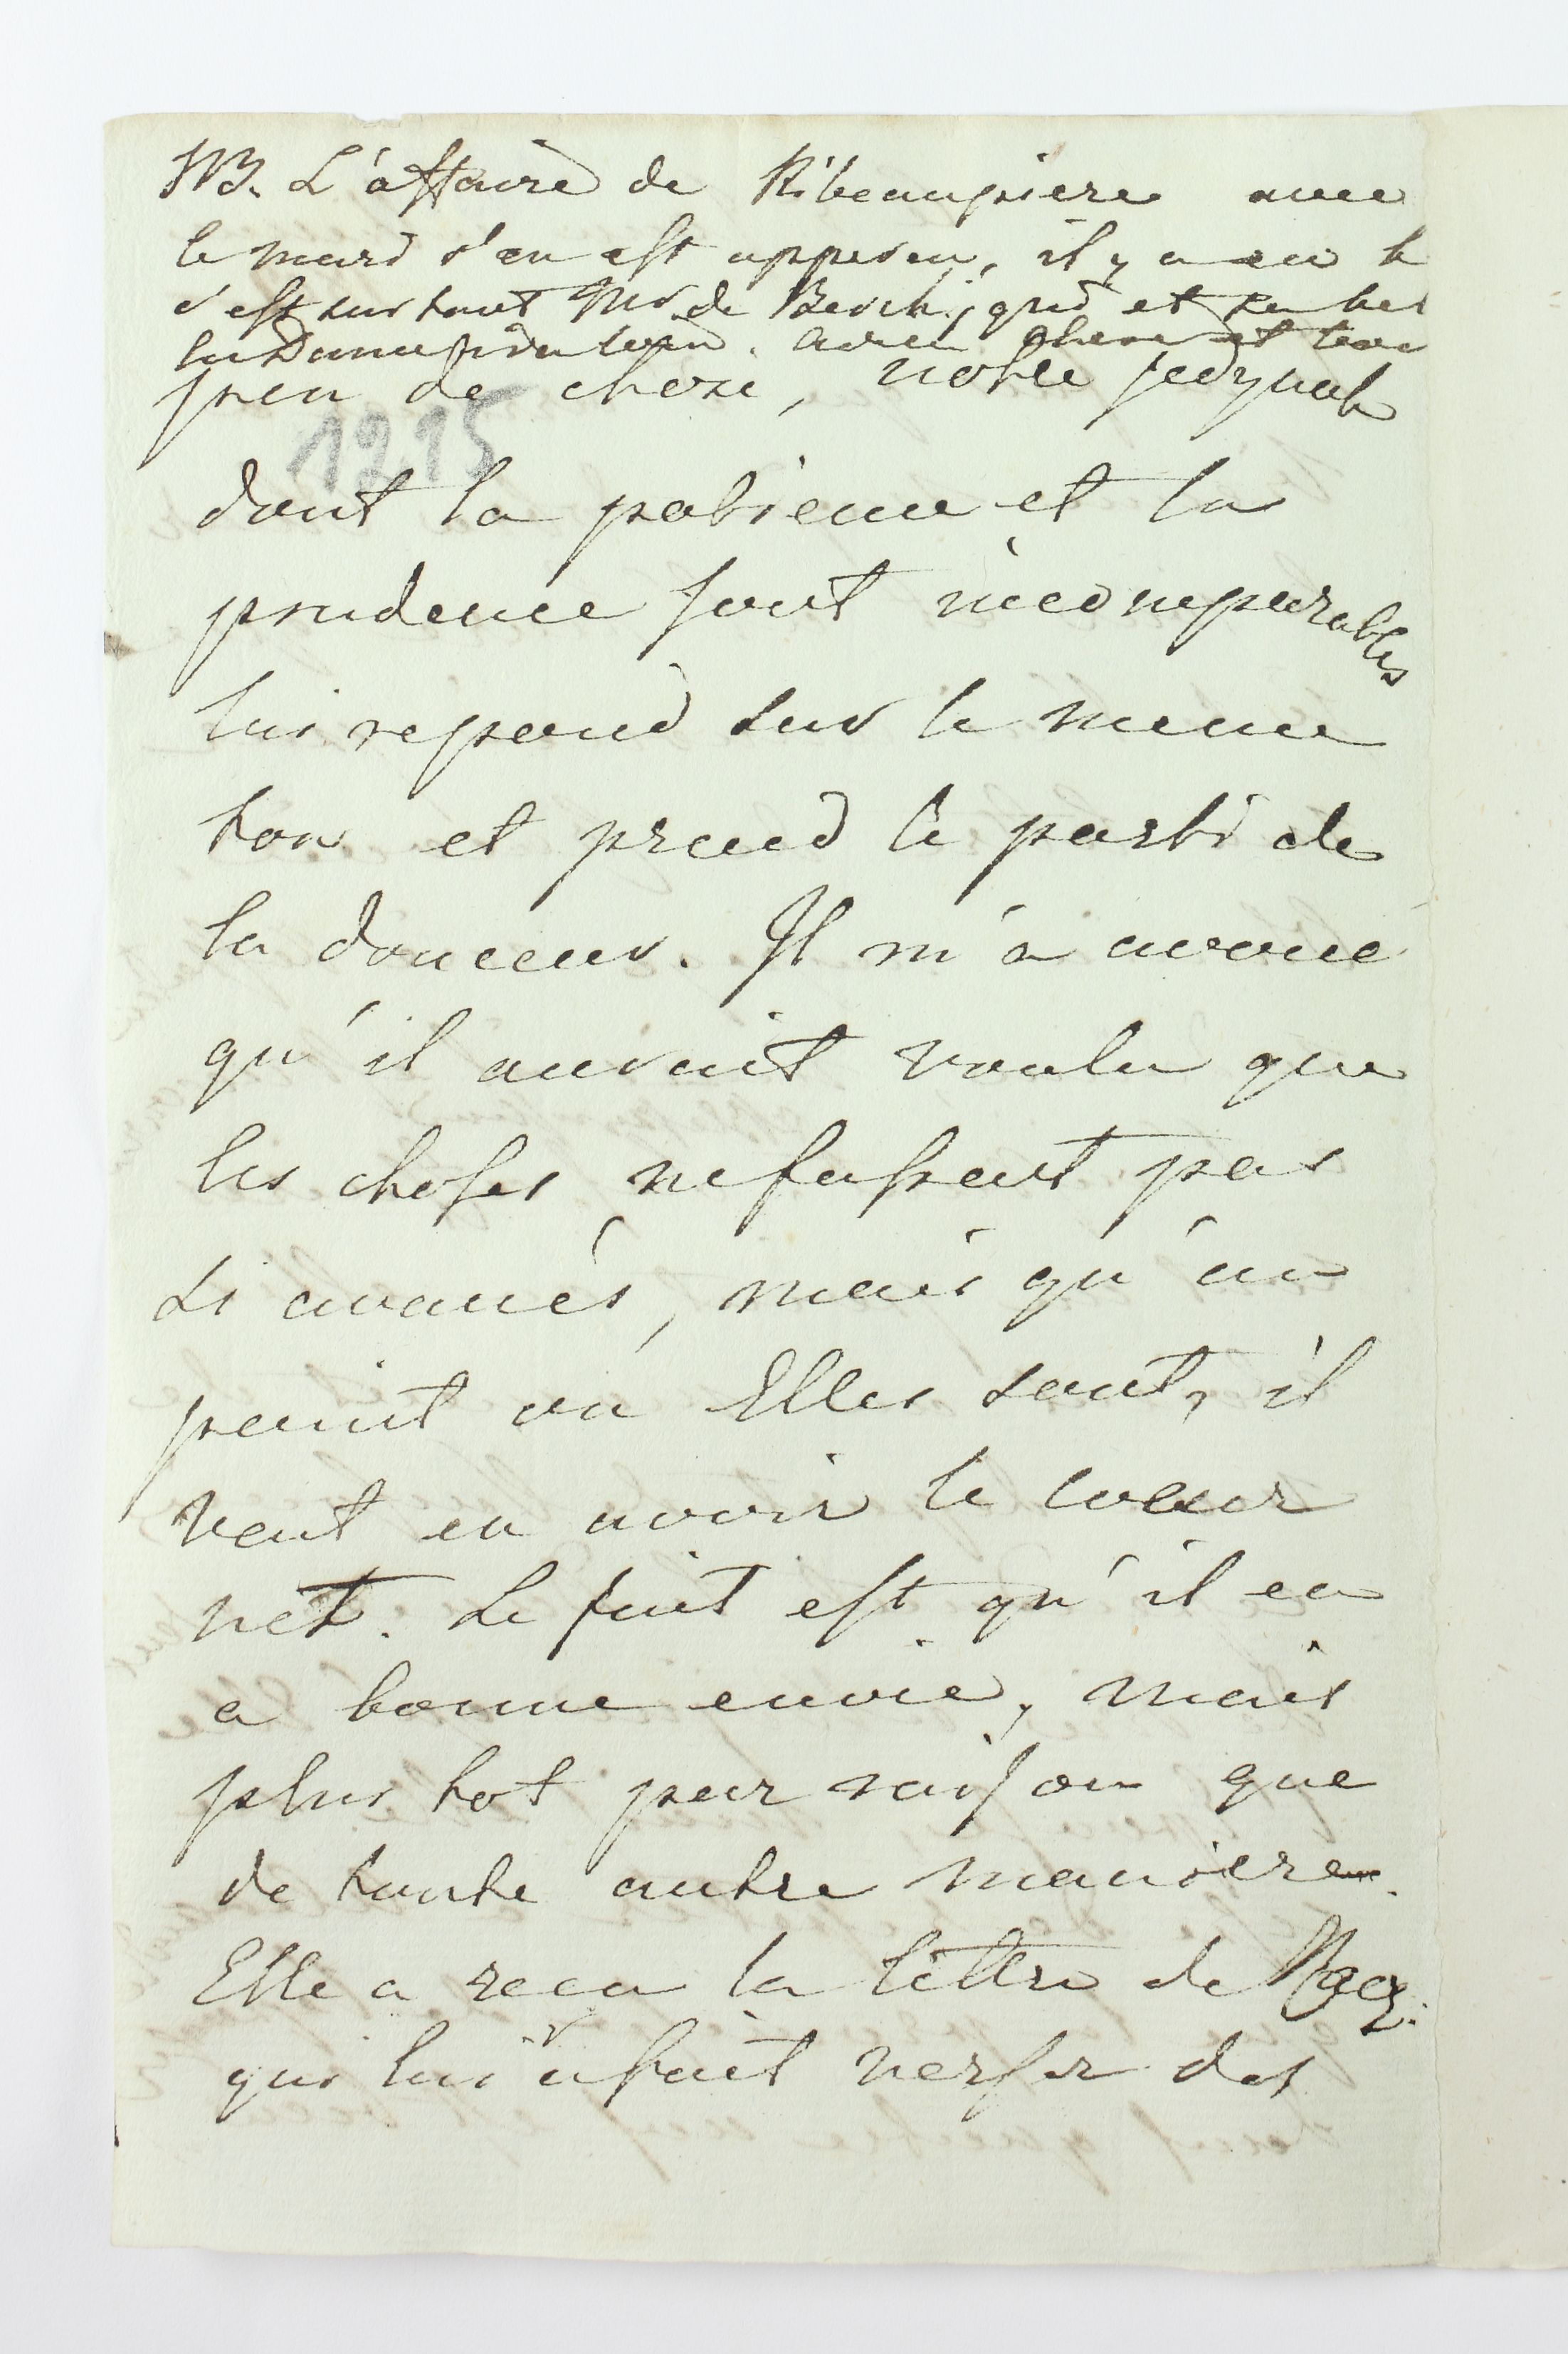 NB. L'affaire de Ribeaupierre avec
le mari s'en est apperçu, il y a eu
c'est surtout Mr de Berch. qui et
la Dame
peu de chose, notre
1215
dont la patience et la
prudence sont incomparables
lui repond sur le meme
ton et prend le parti de
la douceur. Il m'a avoué
qu'il auroit voulu que
les choses ne fussent pas
si avancés, mais qu'au
point ou Elles sont, il
veut en avoir le coeur
net. Le fait est qu'il en
a bonne envie, mais
plus tot par raison que
de toute autre maniere.
Elle a recu la lettre de
qui lui a fait verser des